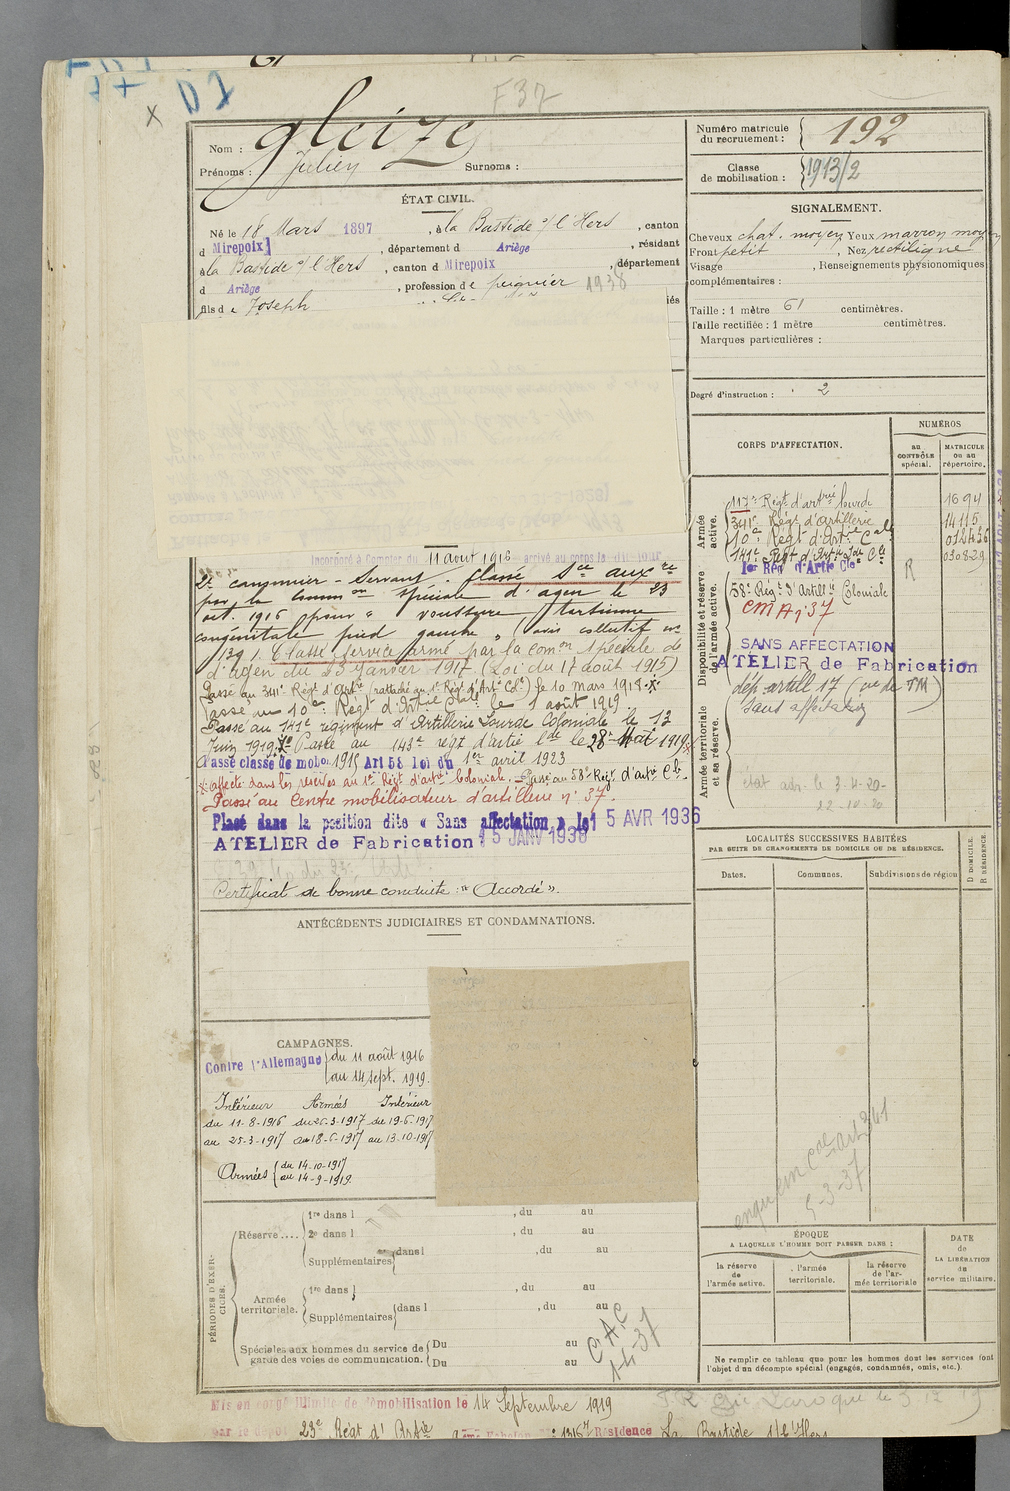 F 37
Nom : gleize
Prénoms : Julien Surnoms :
ÉTAT CIVIL.
Né le 18 Mars 1897, à la Bastide s/ l'Hers, canton
d Mirepoix, département d Ariège, résidant
à la Bastide s/ l'Hers, canton d Mirepoix, département
d Ariège, profession de peignier 1938
fils de Joseph
Incorporé à compter du 11 août 1916 arrivé au corps le dit jour
2e canonnier - Servant. Classé Sce auxre
par la Common spéciale d'agen le 23
oct. 1916 pour "voussure tarsienne
congénitale pied gauche" (avis collectif no
139). Classé service armé par la comon spéciale de
d'agen du 23 Janvier 1917 (Loi du 17 août 1915)
Passé au 341e Régt d'Artrie (rattaché au 1er Régt d'Artie Cole) le 10 mars 1918.
Passé au 10e Régt d'Artie Cole le 1 août 1919.
Passé au 141e régiment d'Artillerie Lourde Coloniale le 12
Juin 1919. Passé au 143e régt d'artie lde le 28 Mai 1919
Passé classe de mobon 1915 Art 58 loi du 1er avril 1923
affecté dans les réserves au 1er Régt d'artie Coloniale. Passé au 58e Régt d'artie Cle
Passé au Centre mobilisateur d'artillerie n° 37.
Placé dans la position dite « Sans affectation » le 15 AVR 1936
ATELIER de Fabrication 15 JANV 1938
Certificat de bonne conduite : "Accordé".
ANTÉCÉDENTS JUDICIAIRES ET CONDAMNATIONS.
CAMPAGNES.
Contre l'Allemagne du 11 août 1916
au 14 sept. 1919.
Intérieur Armées Intérieur
du 11-8-1916 du 26-3-1917 du 19-6-1917
au 25-3-1917 au 18-6-1917 au 13-10-1917
Armées du 14-10-1917
au 14-9-1919
PÉRIODES D'EXERCICES.
Réserve.... 1re dans l , du au
2e dans l , du au
Supplémentaires dans l , du au
Armée territoriale. 1re dans l , du au
Supplémentaires dans l , du au
Spéciales aux hommes du service de garde des voies de communication. Du au
Du au
C A C
14-37
Mis en congé illimité de démobilisation le 14 Septembre 1919
par le dépôt 23e Régt d'Artie Résidence La Bastide s/ l'Hers
Numéro matricule du recrutement : 192
Classe de mobilisation : 1913/2
SIGNALEMENT.
Cheveux chat. moyen Yeux marron moyen
Front petit, Nez rectiligne
Visage , Renseignements physionomiques
complémentaires :
Taille : 1 mètre 61 centimètres.
Taille rectifiée : 1 mètre centimètres.
Marques particulières :
Degré d'instruction : 2
CORPS D'AFFECTATION.
NUMÉROS
au CONTRÔLE spécial.
MATRICULE ou au répertoire.
Armée active.
117e Régt d'artrie lourde 1694
341e Régt d'Artillerie 14115
10e Régt d'Artie Cale 012436
141e Régt d'Artie Lde Cle 030829
Disponibilité et réserve de l'armée active.
1er Rég d'Artie Cle R
58e Régt d'Artillie Coloniale
CMA, 37
SANS AFFECTATION
ATELIER de Fabrication
Armée territoriale et sa réserve.
dép artill 17
Sans affectation
état adr. le 3-4-20-
22-10-20
LOCALITÉS SUCCESSIVES HABITÉES
PAR SUITE DE CHANGEMENTS DE DOMICILE OU DE RÉSIDENCE.
Dates. Communes. Subdivisions de région D DOMICILE. R RÉSIDENCE.
5-3-37
ÉPOQUE
A LAQUELLE L'HOMME DOIT PASSER DANS :
la réserve de l'armée active.
l'armée territoriale.
la réserve de l'armée territoriale
DATE de LA LIBÉRATION du service militaire.
Ne remplir ce tableau que pour les hommes dont les services font
l'objet d'un décompte spécial (engagés, condamnés, omis, etc.).